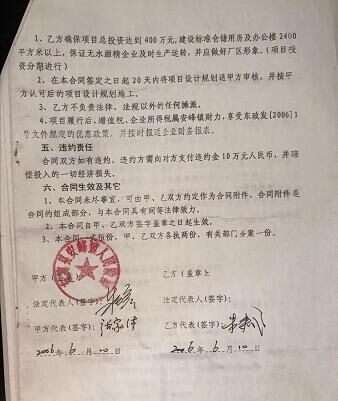 1、乙方确保项目总投资达到 400 万元,建设标准仓储用房及办公楼 2400
平方米以上,保证无水酒精企业及时生产运转,并应做好厂区形象。(项目投
资分期进行)
2、在本合同签定之日起 20 天内将项目设计规划送甲方审核,并按甲
方认可后的项目设计规划施工。
3、乙方不负责律、法规以外的任何摊派。
4、项目履行后,增值税、企业所得税属安峰镇财力,享受东政发[2006]1
号文件规定的优惠政策,并按时报送企业财务报表。
五、违约责任
合同双方如有违约,违约方需向对方支付违约金 10 万元人民币,并赔
偿投入的一切经济损失。
六、合同生效及其它
1、本合同未尽事宜,可由甲、乙双方约定作为合同附件,合同附件是
合同的组成部分,与本合同具有同等法律效力。
2、本合同自甲、乙双方签字盖章之日起生效。
3、本合同一式伍份,甲、乙双方各执两份,有关部门备案一份。
甲方(盖章): 乙方(盖章):
法定代表人(签字): 法定代表人(签字):
甲方代表(签字): 乙方代表(签字):
2006 年 6 月 10 日 2006 年 6 月 10 日